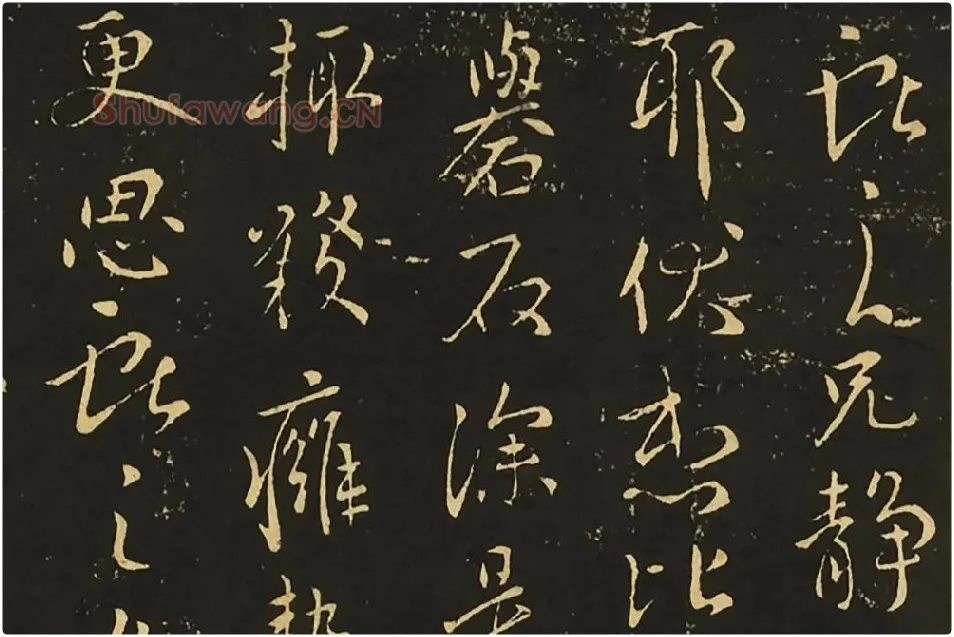 獻之兄静
耶伏想比
礜石深是
輒發癰熱
更思獻之
Shufawang.CN